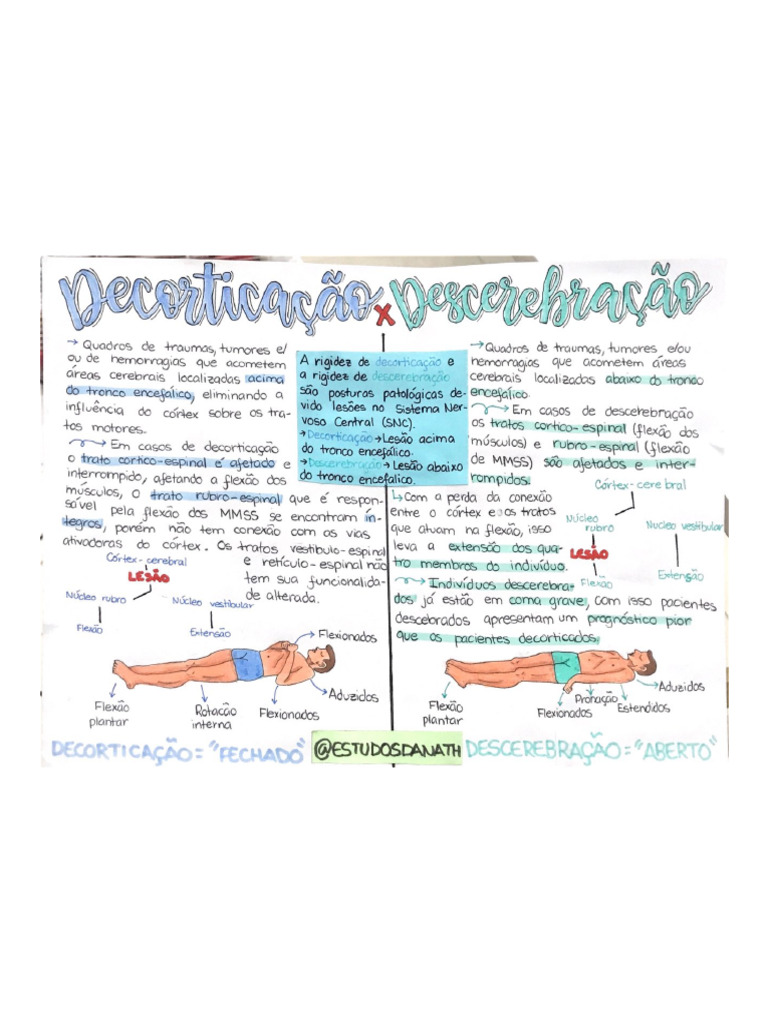 Decorticação x Descerebração
→ Quadros de traumas, tumores e/
ou de hemorragias que acometem
áreas cerebrais localizadas acima
do tronco encefálico, eliminando a
influência do córtex sobre os tra-
tos motores.
→ Em casos de decorticação
o trato cortico-espinal é afetado e
interrompido, afetando a flexão dos
músculos, o trato rubro-espinal que é respon-
sável pela flexão dos MMSS se encontram ín-
tegros, porém não tem conexão com as vias
ativadoras do córtex. Os tratos vestíbulo-espinal
e retículo-espinal não
tem sua funcionalida-
de alterada.
Córtex-cerebral
LESÃO
Núcleo rubro
Núcleo vestibular
Flexão
Extensão
Flexionados
Aduzidos
Flexão
plantar
Rotação
interna
Flexionados
DECORTICAÇÃO = "FECHADO"
A rigidez de decorticação e
a rigidez de descerebração
são posturas patológicas de-
vido lesões no Sistema Ner-
voso Central (SNC).
→ Decorticação → Lesão acima
do tronco encefálico.
→ Descerebração → Lesão abaixo
do tronco encefalico.
@ESTUDOSDANATH
→ Quadros de traumas, tumores e/ou
hemorragias que acometem áreas
cerebrais localizadas abaixo do tronco
encefálico.
→ Em casos de descerebração
os tratos cortico-espinal (flexão dos
músculos) e rubro-espinal (flexão
de MMSS) são afetados e inter-
rompidos.
↳ Com a perda da conexão
entre o córtex e os tratos
que atuam na flexão, isso
leva a extensão dos qua-
tro membros do indivíduo.
→ Indivíduos descerebra-
dos já estão em coma grave, com isso pacientes
descebrados apresentam um prognóstico pior
que os pacientes decorticados.
Córtex-cerebral
Núcleo
rubro
Núcleo vestibular
LESÃO
Flexão
Extensão
Aduzidos
Flexão
plantar
Pronação
Flexionados
Estendidos
DESCEREBRAÇÃO = "ABERTO"